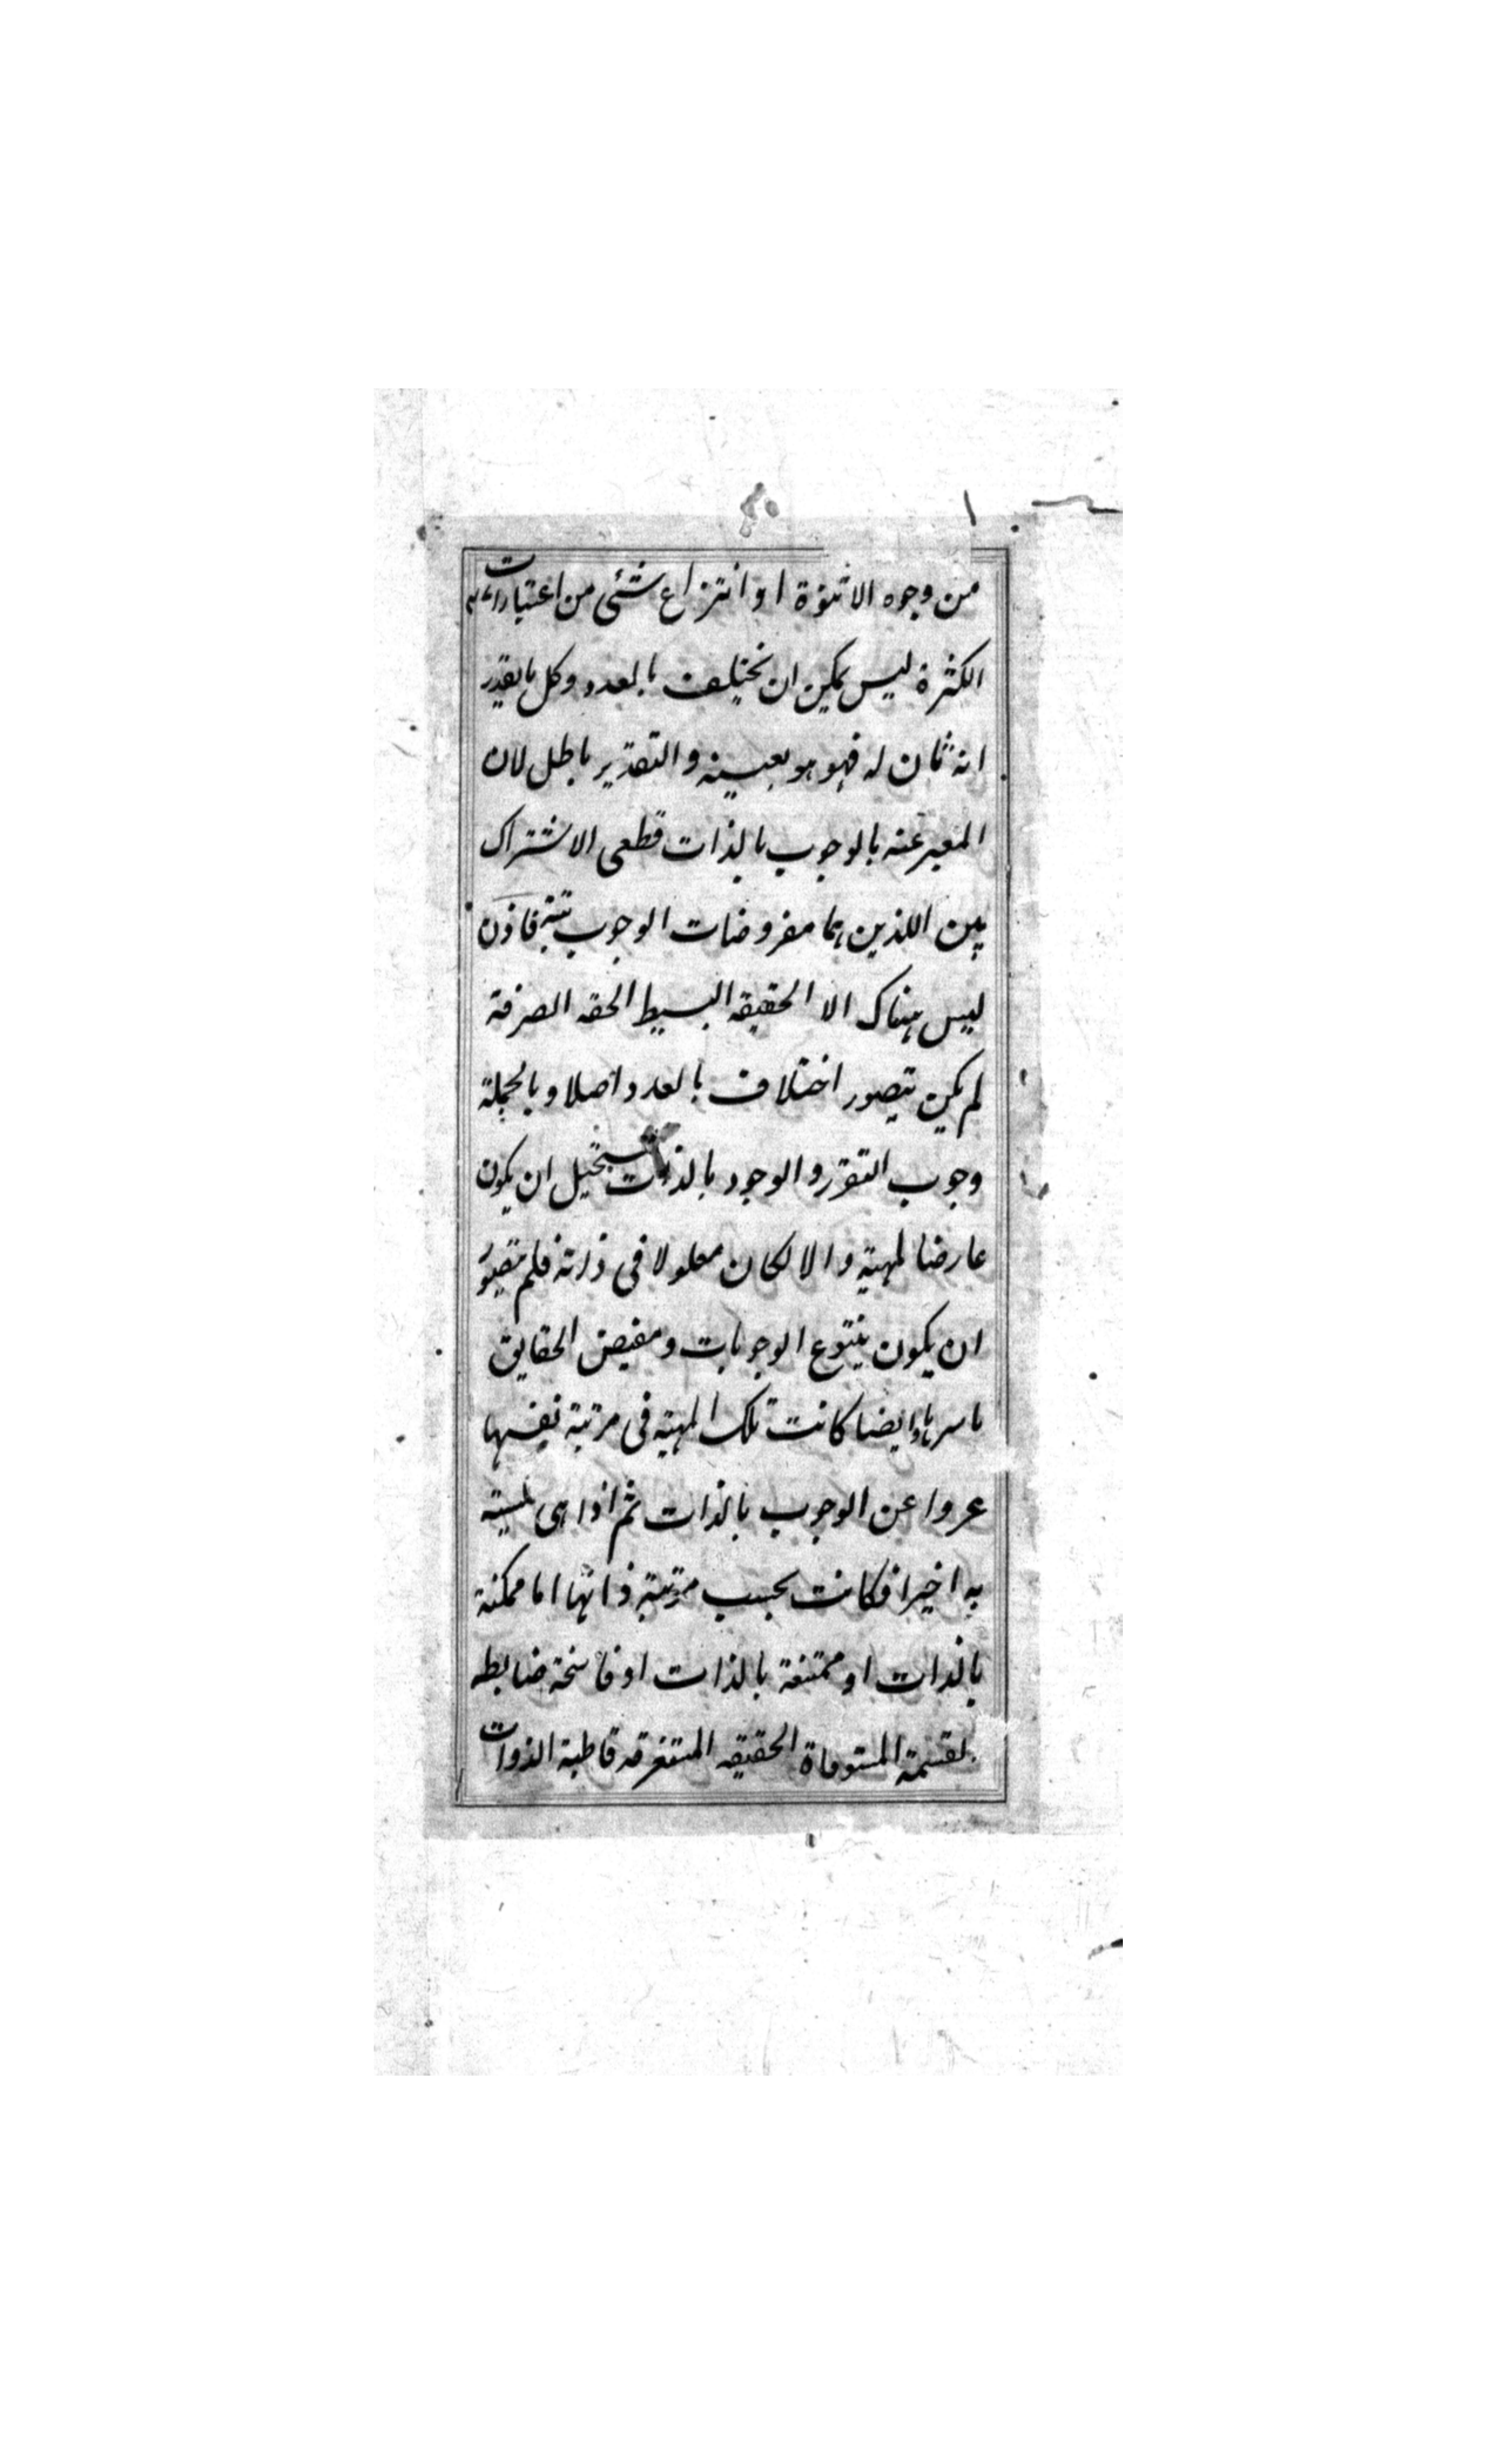 من وجوه الاثنوة او انتزاع شئی من اعتبارات
الكثرة ليس يمكن ان يختلف بالعدد وكل ما يقدر
انه ثان له فهو هو بعينه والتقدير باطل لان
المعبر عنه بالوجوب بالذات قطعی الاشتراك
بين اللذين هما مفروضات الوجوب بتة فاذن
ليس هناك الا الحقيقه البسيط الحقه الصرفة
لم يكن يتصور اختلاف بالعدد اصلا وبالجملة
وجوب التقرر والوجود بالذات يستحيل ان يكون
عارضا لمهية والا لكان معلولا فی ذاته فلم يتصور
ان يكون ينبوع الوجوبات ومفيض الحقايق
باسرها وايضا كانت تلك المهية فی مرتبة نفسها
عروا عن الوجوب بالذات ثم اذا هی
به اخيرا فكانت بحسب مرتبة ذاتها اما ممكنة
بالذات او ممتنعة بالذات او فاسخة ضابطه
القسمة المستوفاة الحقيقه المستغرقه قاطبة الذوات